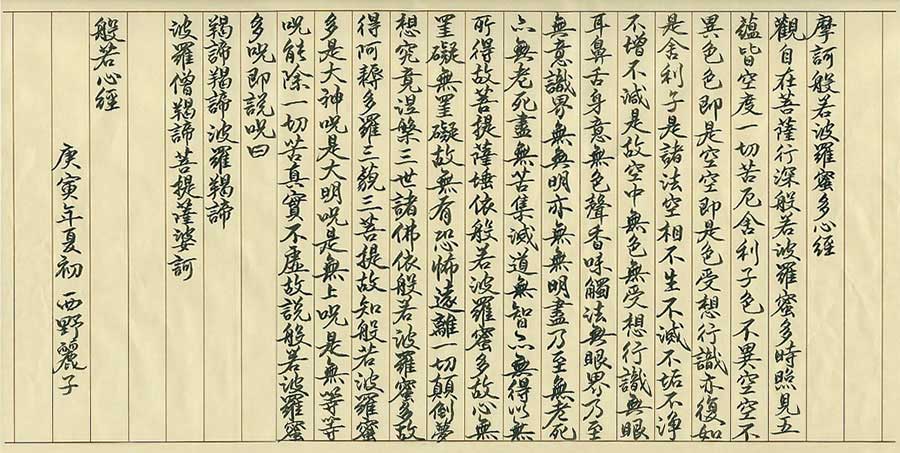 摩訶般若波羅蜜多心經
觀自在菩薩行深般若波羅蜜多時照見五
蘊皆空度一切苦厄舍利子色不異空空不
異色色即是空空即是色受想行識亦復如
是舍利子是諸法空相不生不滅不垢不淨
不增不減是故空中無色無受想行識無眼
耳鼻舌身意無色聲香味觸法無眼界乃至
無意識界無無明亦無無明盡乃至無老死
亦無老死盡無苦集滅道無智亦無得以無
所得故菩提薩埵依般若波羅蜜多故心無
罣礙無罣礙故無有恐怖遠離一切顛倒夢
想究竟涅槃三世諸佛依般若波羅蜜多故
得阿耨多羅三藐三菩提故知般若波羅蜜
多是大神呪是大明呪是無上呪是無等等
呪能除一切苦真實不虛故說般若波羅蜜
多呪即說呪曰
羯諦羯諦波羅羯諦
波羅僧羯諦菩提薩婆訶
般若心經
庚寅年夏初 西野麗子